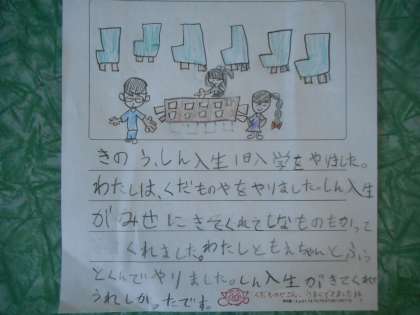 きのう、しん入生1日入学をやりました。
わたしは、くだものやをやりました。しん入生
がみせにきてくれてしなものもかって
くれました。わたしともえちゃんと
とくんでやりました。しん入生がきてくれて
うれしかったです。